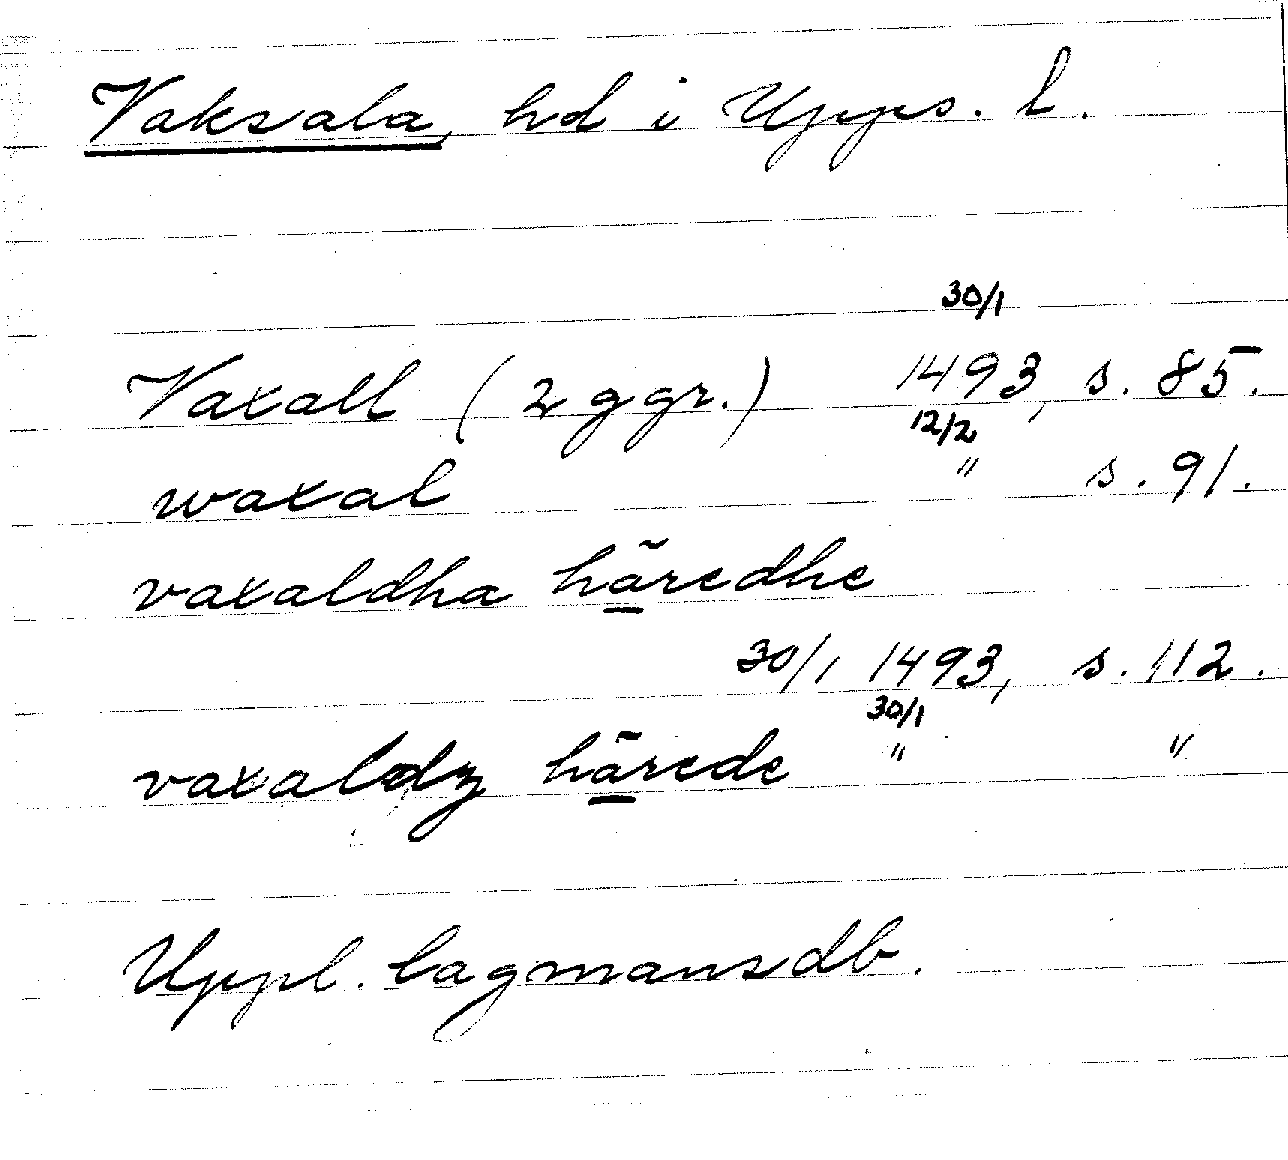 Vaksala, hd i Upps. l.
30/1
Vaxall (2 ggr.) 1493, s. 85.
12/2
waxal " s. 91.
vaxaldha häredhe
30/1 1493, s. 112.
30/1
vaxaldz härede " "
Uppl. lagmansdb.